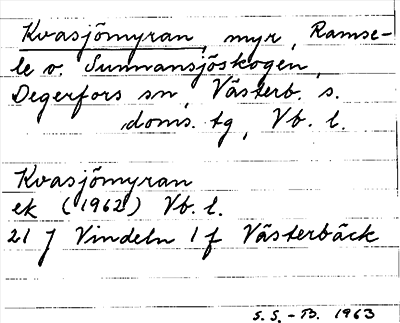 Kvasjömyran, myr, Ramse-
le o. Sunnansjöskogen,
Degerfors sn, Västerb. s.
doms. tg, Vb. l.
Kvasjömyran
ek (1962) Vb. l.
21 J Vindeln 1 f Västerbäck
S. S.-B. 1963